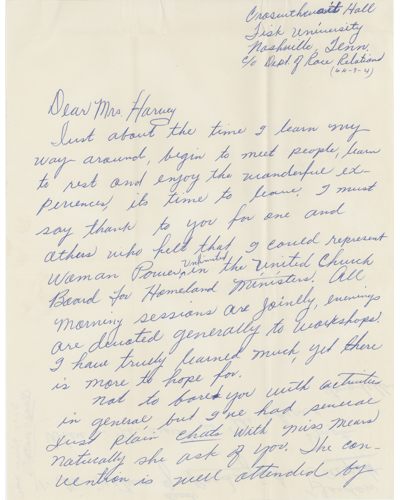 Croswthwait Hall
Fisk University
Nashville, Tenn.
c/o Dept. of Race Relations
(64-9-4)
Dear Mrs. Harvey
Just about the time I learn my
way around, begin to meet people, learn
to rest and enjoy the wonderful ex-
periences, its time to leave. I must
say thank to you for one and
others who felt that I could represent
Woman Power, Unlimited in the United Church
Board for Homeland Ministers. All
morning sessions are joinly, evenings
are devoted generally to workshops.
I have truly learned much, yet there
is more to hope for.
Not to bored you with activities
in general, but I've had several
Just plain chats with Miss Mears
Naturally she ask of you. The con-
vention is well attended by